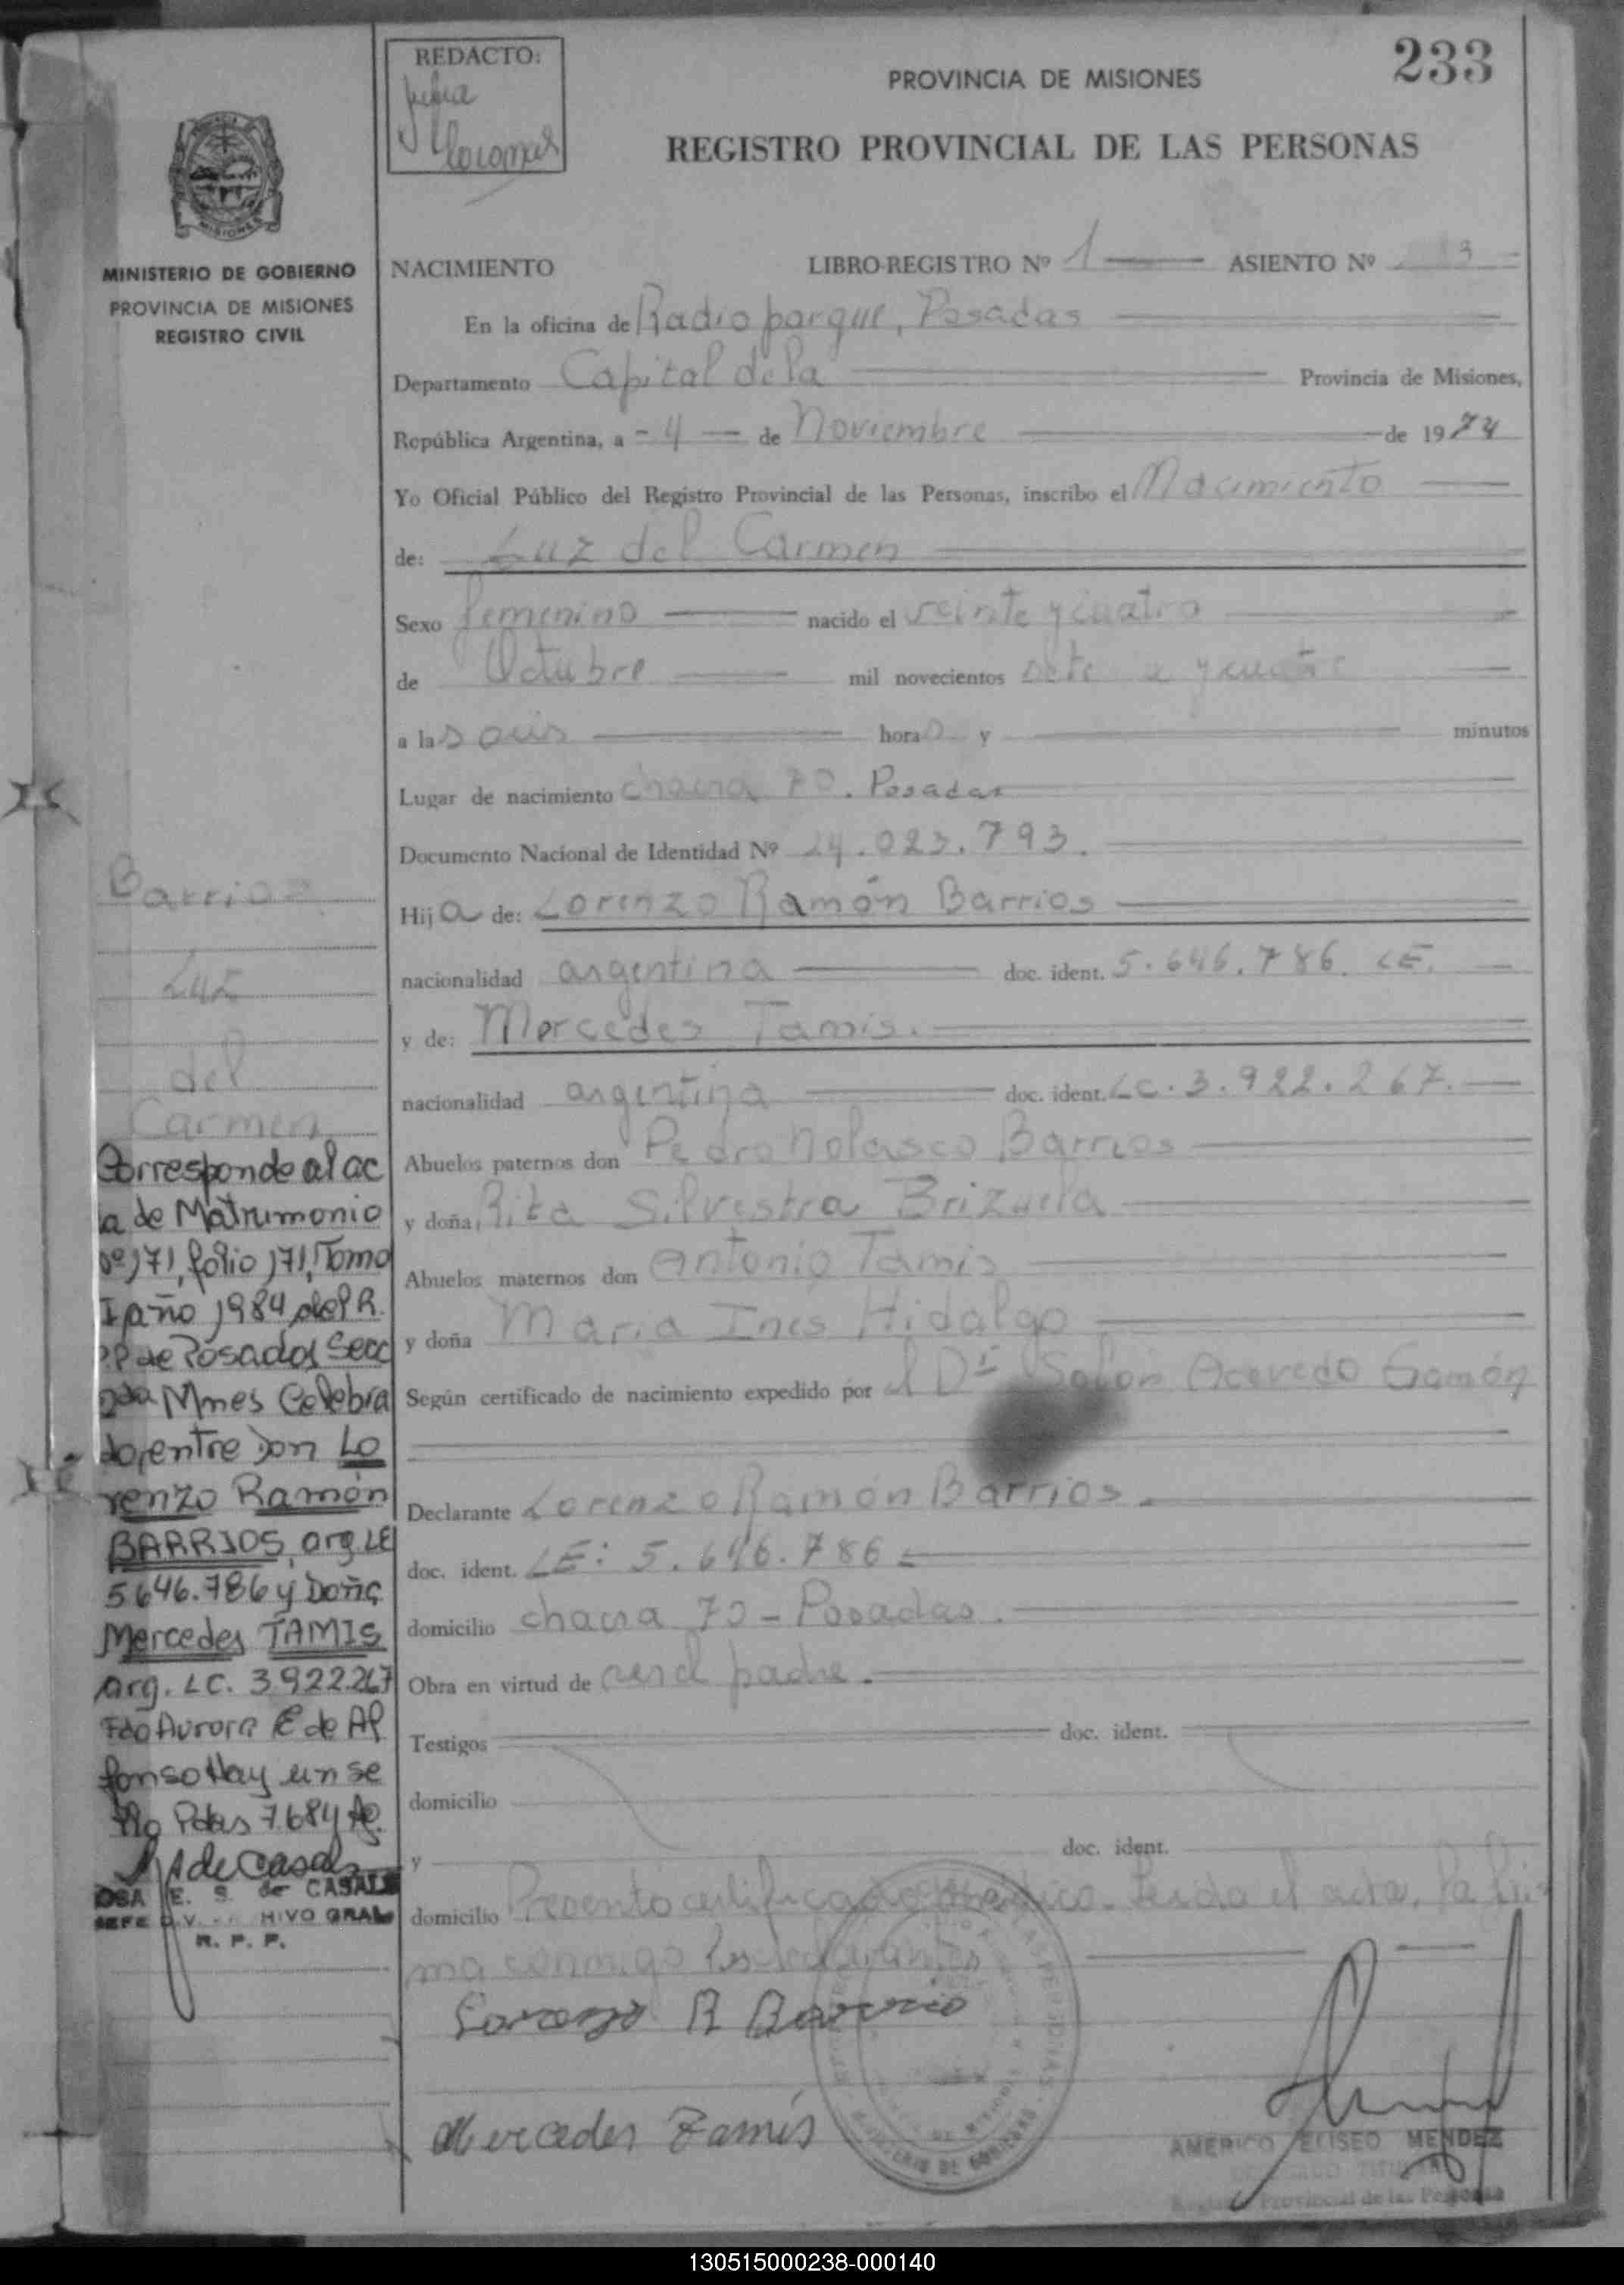 233
REDACTO:
PROVINCIA DE MISIONES
REGISTRO PROVINCIAL DE LAS PERSONAS
MISIONES
MINISTERIO DE GOBIERNO
PROVINCIA DE MISIONES
REGISTRO CIVIL
NACIMIENTO LIBRO-REGISTRO Nº 1 ASIENTO Nº
En la oficina de Radioparque, Posadas
Departamento Capital de la Provincia de Misiones,
República Argentina, a - 4 - de Noviembre de 1974
Yo Oficial Público del Registro Provincial de las Personas, inscribo el Nacimiento
de: Luz del Carmen
Sexo femenino nacido el veinte y cuatro
de Octubre mil novecientos
a las seis horas y minutos
Lugar de nacimiento chacra 70. Posadas
Documento Nacional de Identidad Nº 24.023.793.
Hija de: Lorenzo Ramón Barrios
nacionalidad argentina doc. ident. 5.646.786. LE.
y de: Mercedes Tamis.
nacionalidad argentina doc. ident. LC. 3.922.267.
Abuelos paternos don Pedro Nolasco Barrios
y doña, Rita Silvestra Brizuela
Abuelos maternos don Antonio Tamis
y doña Maria Ines Hidalgo
Según certificado de nacimiento expedido por el Dr Acevedo Gamón
Declarante Lorenzo Ramón Barrios.
doc. ident. LE: 5.646.786
domicilio chacra 70 - Posadas.
Obra en virtud de ser el padre.
Testigos doc. ident.
domicilio
y doc. ident.
domicilio Presento certificado médico. Leida el acta, la fir
ma conmigo los declarantes
Lorenzo R Barrio
Mercedes Tamis
AMERICO ELISEO MENDEZ
TITULAR
Registro Provincial de las Personas
Barrios
Luz
del
Carmen
Corresponde al ac
a de Matrimonio
Nº 171, folio 171, Tomo
I año 1984 del R.
P.P de Posadas Secc
2da Mnes Celebra
do entre Don Lo
renzo Ramón
BARRIOS, arg. LE
5.646.786 y Doña
Mercedes TAMIS
arg. LC. 3.922.267
Fdo Aurora E de Al
fonso Hay un se
llo Pdas 7.6.84
de Casals
E. S. de CASALS
JEFE DIV. ARCHIVO GRAL.
R. P. P.
130515000238-000140